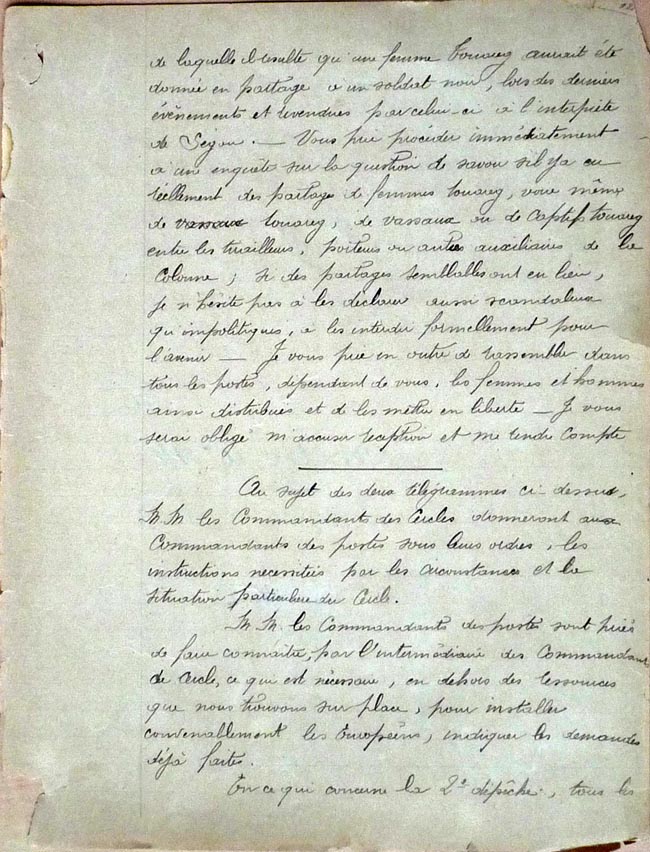 de laquelle il résulte qu'une femme touareg aurait été
donnée en partage à un soldat noir, lors des derniers
évènements et revendues par celui-ci à l'interprète
de Ségou. — Vous prie procéder immédiatement
à une enquête sur la question de savoir s'il y a eu
réellement des partage de femmes touareg, voire même
de vassaux touareg, de vassaux ou de captifs touareg
entre les tirailleurs, porteurs ou autres auxiliaires de la
Colonne ; si des partages semblables ont eu lieu,
je n'hésite pas à les déclarer aussi scandaleux
qu'impolitiques, à les interdire formellement pour
l'avenir — Je vous prie en outre de rassembler dans
tous les postes, dépendant de vous, les femmes et hommes
ainsi distribués et de les mettre en liberté — Je vous
serai obligé m'accuser réception et me rendre compte
Au sujet des deux télégrammes ci-dessus,
M.M. les Commandants des Cercles donneront aux
Commandants des postes sous leurs ordres, les
instructions nécessitées par les circonstances et la
situation particulière du Cercle.
M.M. les Commandants des postes sont priés
de faire connaître, par l'intermédiaire des Commandants
de Cercle, ce qui est nécessaire, en dehors des ressources
que nous trouvons sur place, pour installer
convenablement les Européens, indiquer les demandes
déjà faites.
En ce qui concerne la 2e dépêche, tous les